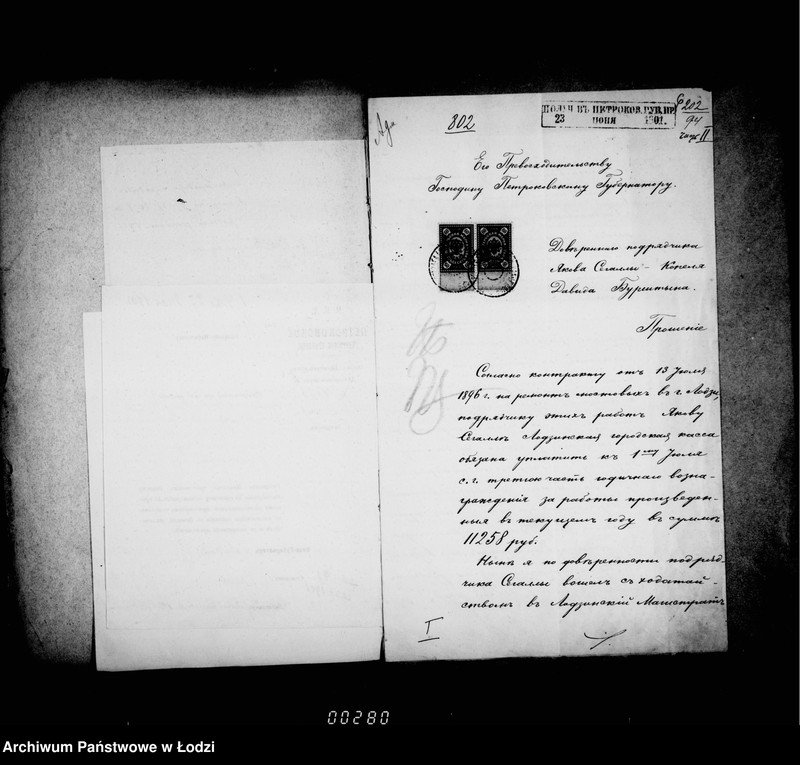 802
ПОДАН ВЪ ПЕТРОКОВ. ГУБ. ПР.
23 ІЮНЯ 1901.
6202
94
часть II
Его Превосходительству
Господину Петроковскому Губернатору.
Довѣреннаго подрядчика
Якова Сегаллы - Копеля
Давида Бурштына.
Прошеніе
Согласно контракту отъ 13 Іюля
1896 г. на ремонтъ мостовыхъ въ г. Лодзи,
подрядчику этихъ работъ Якову
Сегаллѣ Лодзинская городская касса
обязана уплатить къ 1му Іюля
с. г. третью часть годичнаго возна-
гражденія за работы произведен-
ныя въ текущемъ году въ суммѣ
11258 руб.
Нынѣ я по довѣренности подряд-
чика Сегаллы вошелъ съ ходатай-
ствомъ въ Лодзинскій Магистратъ
I
00280
Archiwum Państwowe w Łodzi